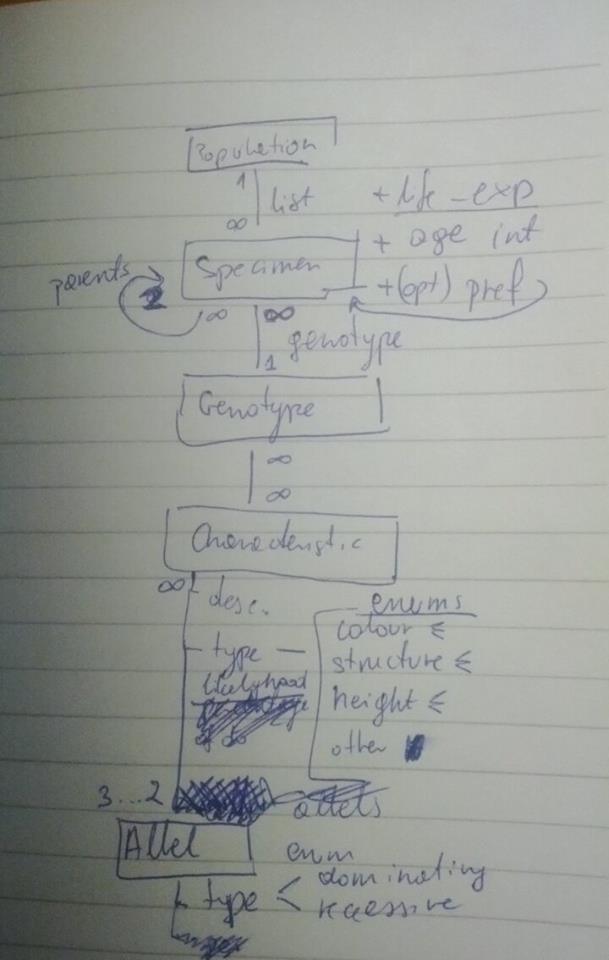 Population
1
list
∞
+ life_exp
+ age int
+ (opt) pref
parents
2
Specimen
∞ ∞
genotype
1
Genotype
∞
∞
Characteristic
∞
desc.
enums
colour
type
structure
likelyhood
height
other
3...2
allels
Allel
enum
dominating
type
recessive